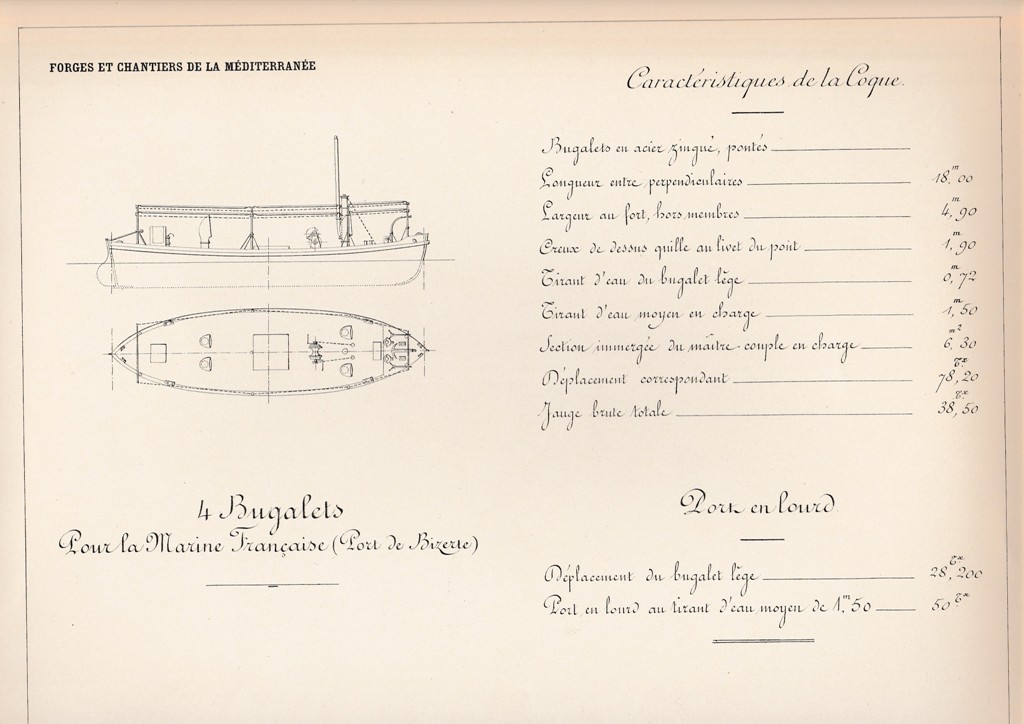 FORGES ET CHANTIERS DE LA MÉDITERRANÉE
4 Bugalets
Pour la Marine Française (Port de Bizerte)
Caractéristiques de la Coque.
Bugalets en acier zingué, pontés
Longueur entre perpendiculaires 18,ᵐ00
Largeur au fort, hors membres 4,ᵐ90
Creux de dessus quille au livet du pont 1,ᵐ90
Tirant d'eau du bugalet lège 0,ᵐ72
Tirant d'eau moyen en charge 1,ᵐ50
Section immergée du maître-couple en charge 6,ᵐ²30
Déplacement correspondant 78,ᵀˣ20
Jauge brute totale 38,ᵀˣ50
Port en lourd
Déplacement du bugalet lège 28,ᵀˣ200
Port en lourd au tirant d'eau moyen de 1,ᵐ50 50ᵀˣ